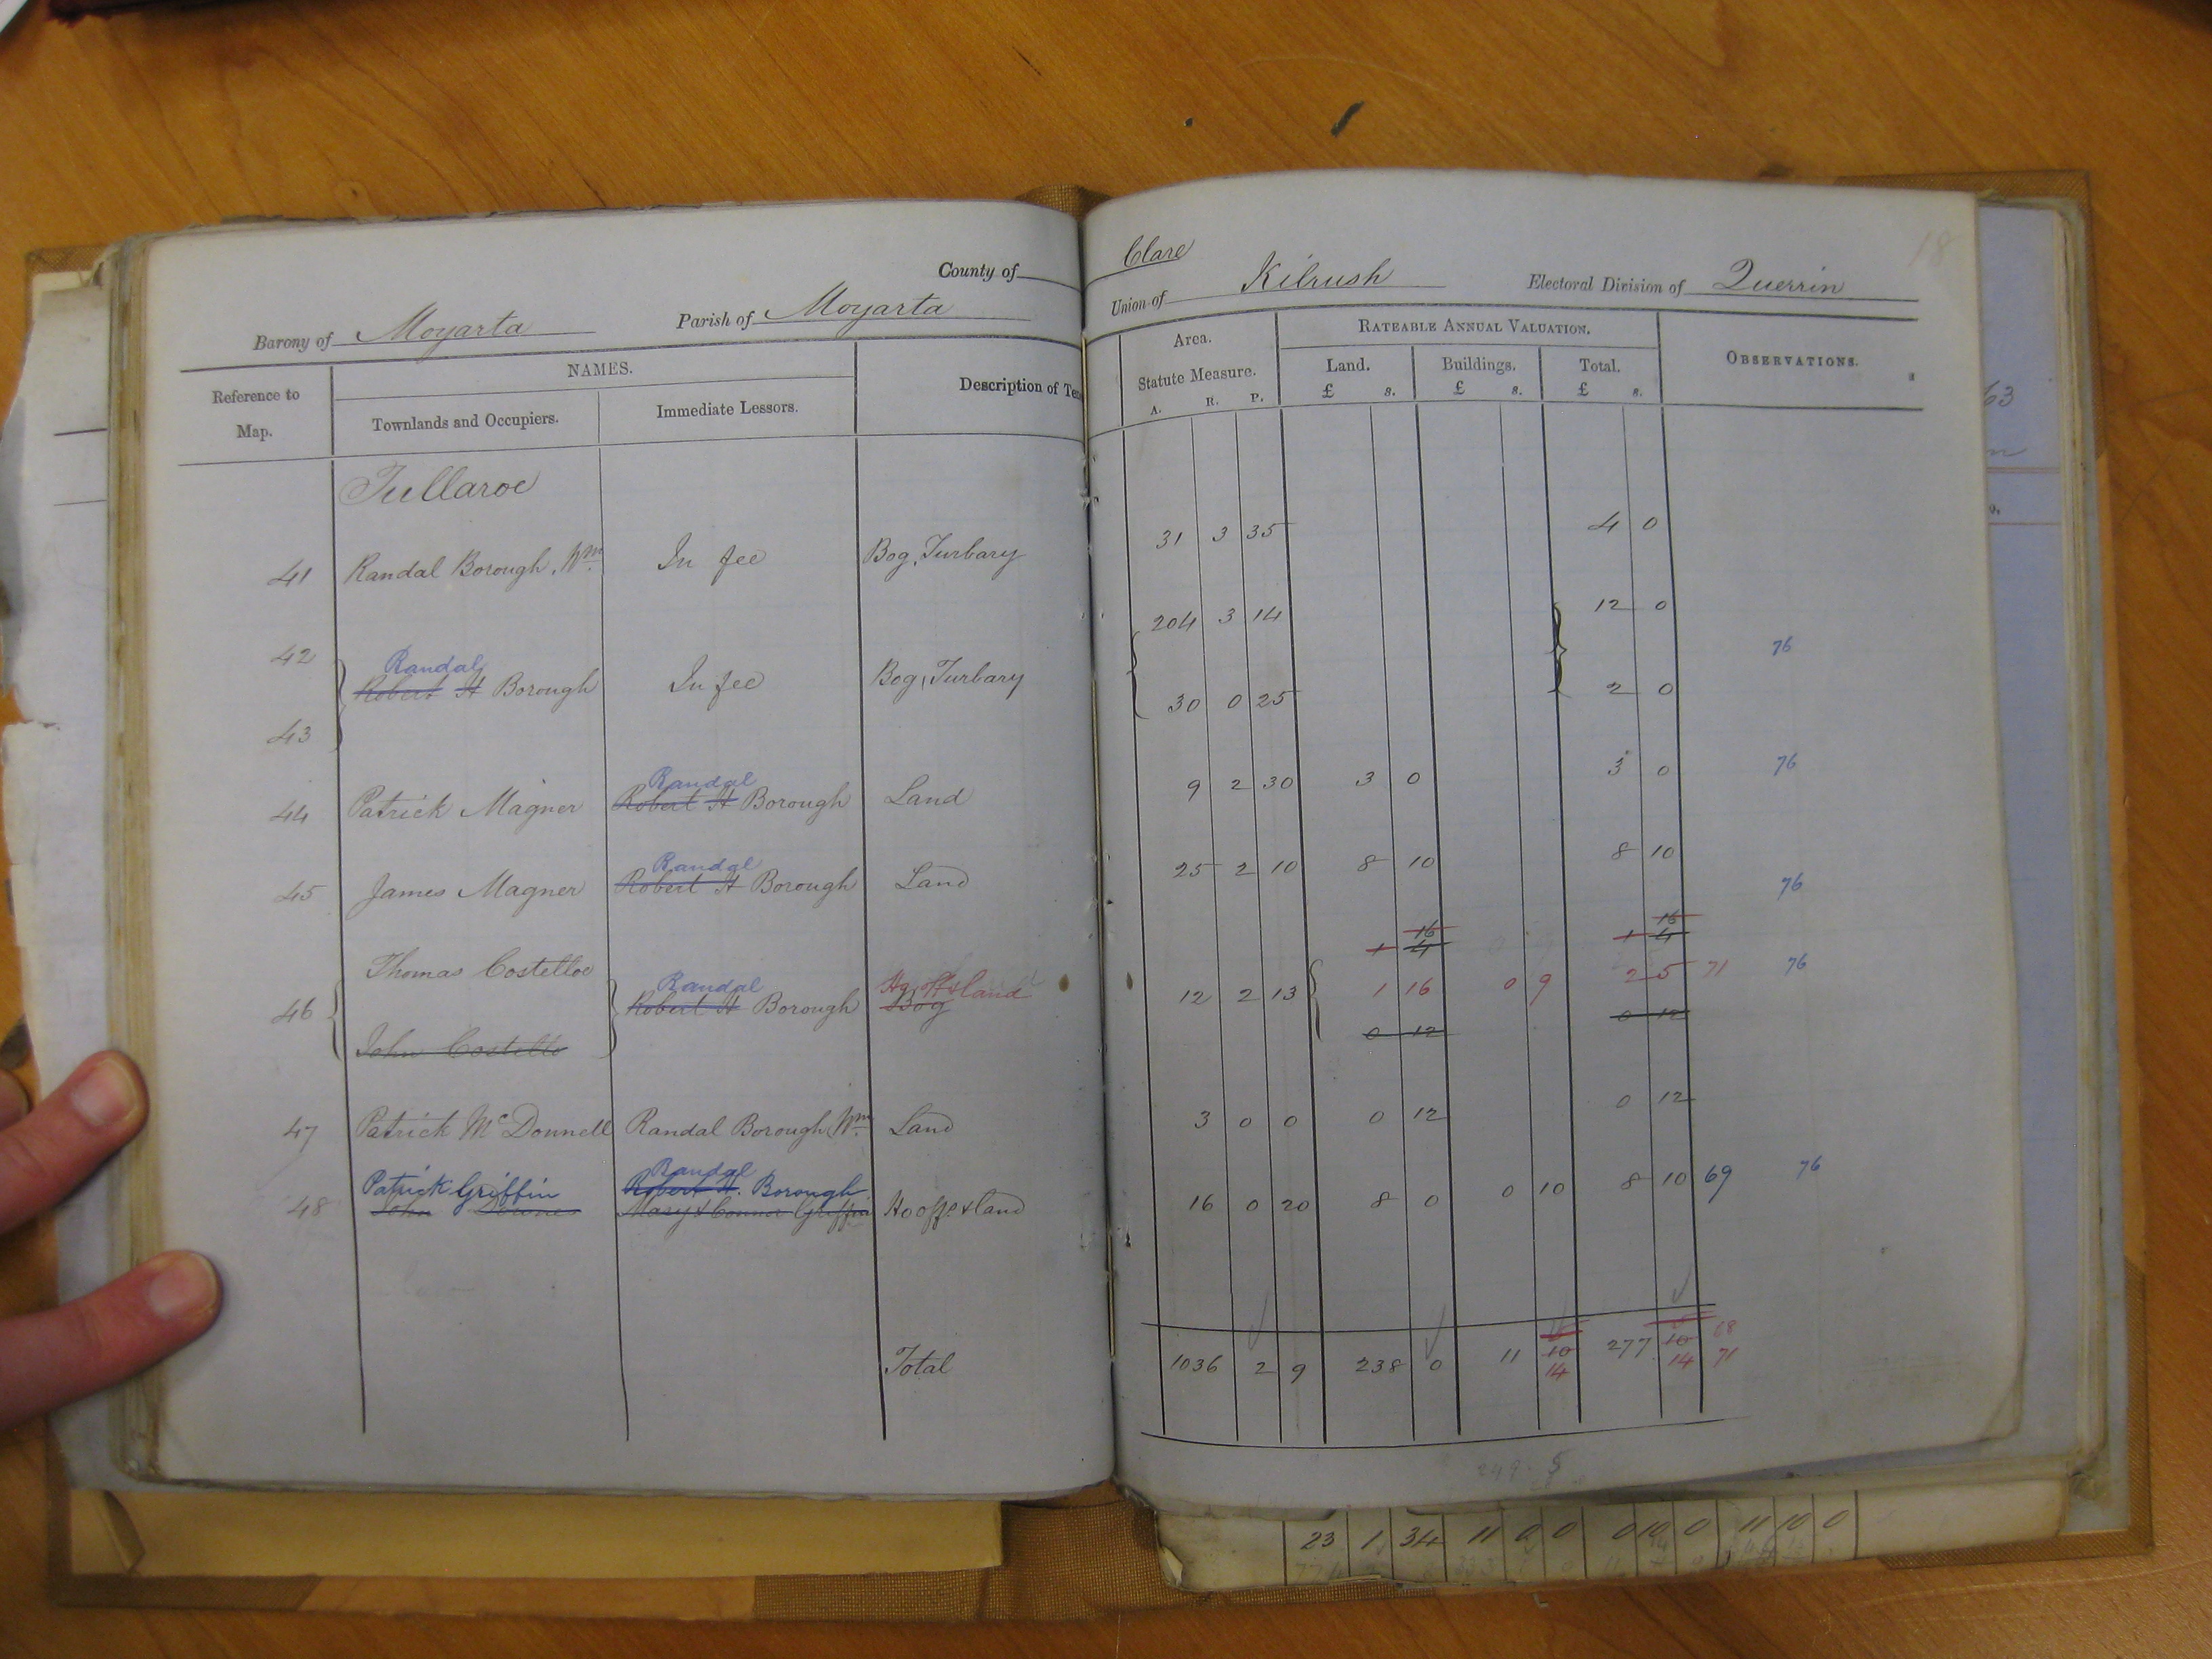 County of Clare
Barony of Moyarta Parish of Moyarta Union of Kilrush Electoral Division of Querrin
18
Reference to Map. NAMES. Description of Te Area. RATEABLE ANNUAL VALUATION. OBSERVATIONS.
Townlands and Occupiers. Immediate Lessors. Statute Measure. Land. Buildings. Total.
A. R. P. £ s. £ s. £ s.
Tullaroe
41 Randal Borough, Wm. In fee Bog, Turbary 31 3 35 4 0
42 204 3 14 12 0
Randal
Robert H Borough In fee Bog, Turbary 76
43 30 0 25 2 0
Randal
44 Patrick Magner Robert H Borough Land 9 2 30 3 0 3 0 76
Randal
45 James Magner Robert H Borough Land 25 2 10 8 10 8 10 76
16 16
1 4 1 4
Thomas Costelloe Randal Ho. Offs & land
46 Robert H Borough Bog 12 2 13 1 16 0 9 2 5 71 76
John Costello 0 12 0 12
47 Patrick McDonnell Randal Borough, Wm. Land 3 0 0 0 12 0 12
Patrick Griffin Randal
Robert H. Borough
48 John Downes Mary & Connor Griffin Ho offs & land 16 0 20 8 0 0 10 8 10 69 76
68
Total 1036 2 9 238 0 11 10 277 10
14 14 71
249 5
23 1 34 11 0 0 0 10 0 11 10 0
63